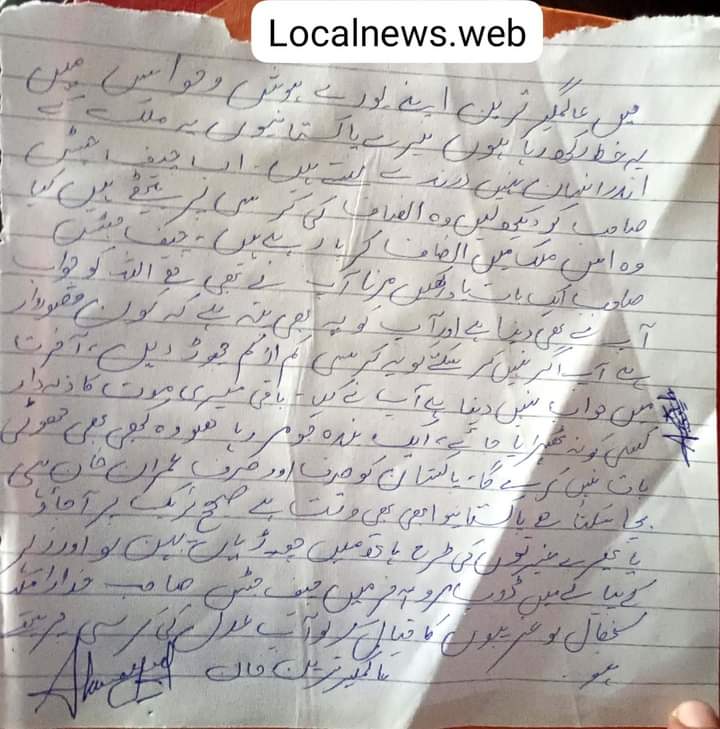 Localnews.web
میں عالمگیر ترین اپنے پورے ہوش و حواس میں
یہ خط لکھ رہا ہوں میرے پاکستانیوں یہ ملک کے
اندر انسان نہیں درندے بستے ہیں۔ اب چیف جسٹس
صاحب کو دیکھ لیں وہ انصاف کی کرسی پر بیٹھے ہیں کیا
وہ اس ملک میں انصاف کر پا رہے ہیں۔ چیف جسٹس
صاحب ایک بات یاد رکھیں مرنا آپ نے بھی ہے اللہ کو جواب
آپ نے بھی دینا ہے اور آپ کو یہ بھی پتہ ہے کہ کون قصوروار
ہے آپ اگر نہیں کر سکتے تو یہ کرسی کم از کم چھوڑ دیں، آخرت
میں جواب نہیں دینا ہے آپ نے کیا۔ باقی میری موت کا ذمہ دار
کسی کو نہ ٹھہرایا جائے، ایک بندہ جو مر رہا ہو وہ کبھی بھی جھوٹی
بات نہیں کرے گا۔ پاکستان کو صرف اور صرف عمران خان ہی
بچا سکتا ہے پاکستانیو ابھی بھی وقت ہے صحیح ٹریک پر آ جاؤ
یا پھر بے غیرتوں کی طرح ہاتھ میں چوڑیاں پہن لو اور زہر
کے پیالے میں ڈوب مرو آخر میں چیف جسٹس صاحب خدارا ملک
سنبھال لو غریبوں کا خیال کر لو آپ عدل کی کرسی پر بیٹھے
ہو۔
عالمگیر ترین خان